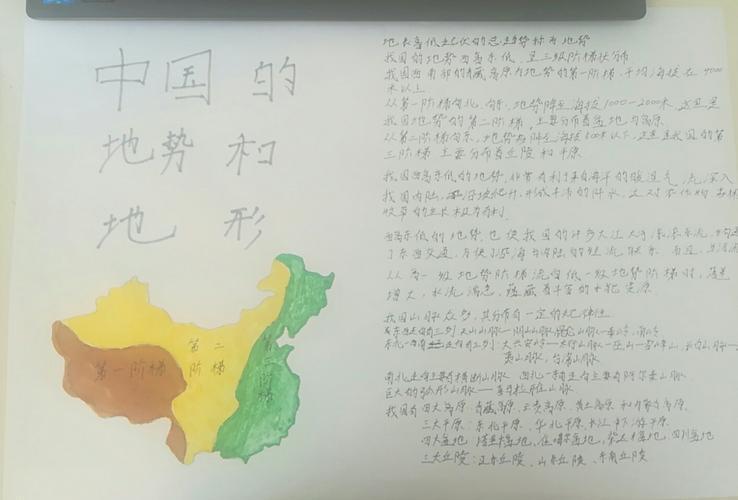 中国的
地势和
地形
第一阶梯
第二
阶梯
第三阶梯
地表高低起伏的总趋势称为地势
我国的地势西高东低,呈三级阶梯状分布
我国西南部的青藏高原为地势的第一阶梯,平均海拔在4000
米以上
从第一阶梯向北、向东,地势降至海拔1000—2000米,这里是
我国地势的第二阶梯,主要分布着盆地与高原
从第二阶梯向东,地势再降至海拔500米以下,这里是我国的第
三阶梯,主要分布着丘陵和平原
我国西高东低的地势,非常有利于来自海洋的暖湿气流深入
我国内陆,沿坡爬升,形成丰沛的降水,这对农作物、森林
牧草的生长极为有利
西高东低的地势,也使我国的许多大江大河滚滚东流,沟通
了东西交通,方便了沿海与内陆的经济联系
从高一级地势阶梯流向低一级地势阶梯时,落差
增大,水流湍急,蕴藏着丰富的水能资源
我国山脉众多,其分布有一定的规律性
东西走向有三列:天山山脉—阴山山脉,昆仑山脉—秦岭,南岭
东北—西南走向有三列:大兴安岭—太行山脉—巫山—雪峰山,长白山脉—
武夷山脉,台湾山脉
南北走向主要有横断山脉 西北—东南走向主要有阿尔泰山脉
巨大的弧形山脉——喜马拉雅山脉
我国有四大高原:青藏高原、云贵高原、黄土高原和内蒙古高原
三大平原:东北平原、华北平原、长江中下游平原
四大盆地:塔里木盆地、准噶尔盆地、柴达木盆地、四川盆地
三大丘陵:辽东丘陵、山东丘陵、东南丘陵